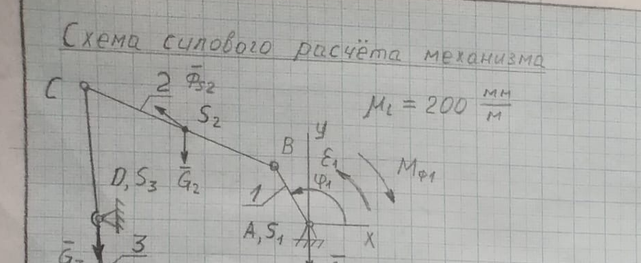 Схема силового расчёта механизма
C 2 Φ̄S2
S2
μl = 200 мм/м
y
B
ε1
Mф1
D, S3
Ḡ2
1
φ1
A, S1
x
3